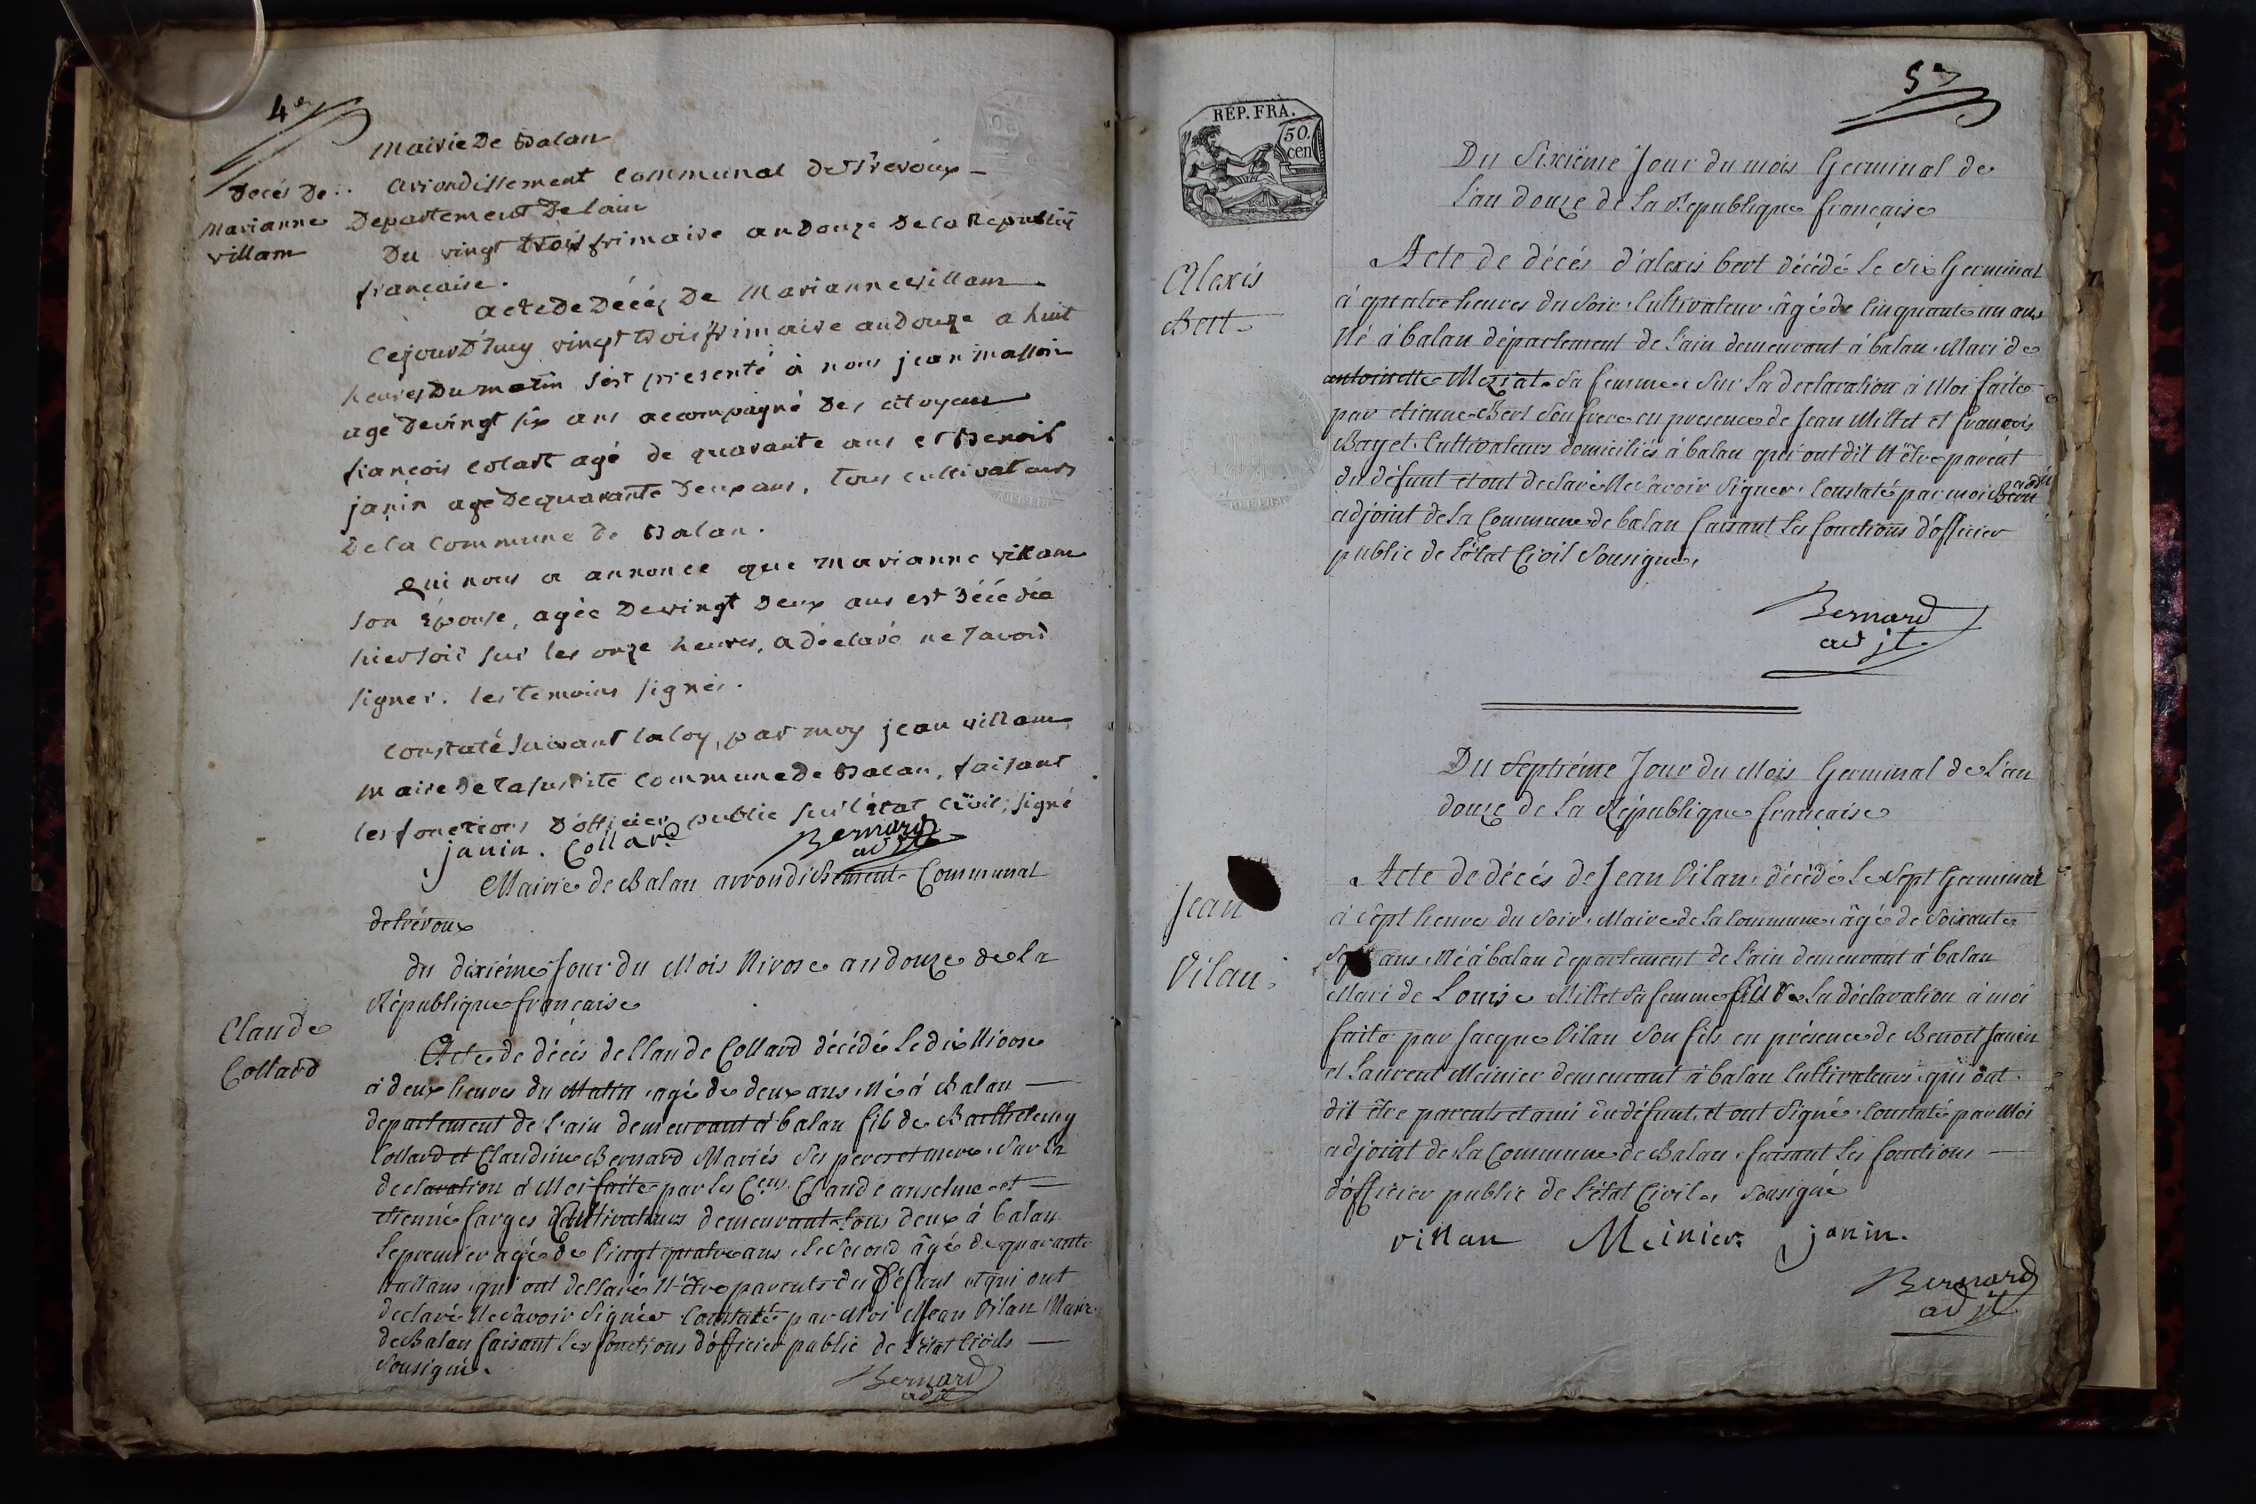 4e
Mairie De Balan
Decés De
Marianne
villam
arrondissement communal De Trevoux
Departement De lain
Du vingt trois frimaire an Douze De la Republiq
française.
acte De Décés De Marianne villam
Cejourd'huy vingt trois frimaire an douze a huit
heures Du matin s'est presenté à nous jean masson
agé De vingt six ans acompagné Des citoyens
françois colart agé de quarante ans et Benoit
janin agé De quarante Deux ans, tous cultivateurs
De la commune de Balan.
Qui nous a annoncé que marianne villam
son épouse, agée De vingt Deux ans est Décédée
hier soir sur les onze heures, a déclaré ne savoir
signer. les temoins signés.
Constaté suivant la loy, par moy jean villam
maire De la susdite commune De Balan, faisant
les fonctions D'officier public sur l'état civil, signé
janin. Collard Bernard
adjt
Mairie de Balan arrondissement Communal
de trévoux
du dixiéme Jour du Mois Nivose an douze de la
République française
Claude
Collard
Acte de décés de Claude Collard décédé le dix Nivose
à deux heures du Matin agé de deux ans Né à Balan
departement de l'ain demeurant à balan fils de Barthelemy
Collard et Claudine Bernard Mariés ses pere et mere. Sur la
declaration à Moi faite par les Cens Claude anselme et
etienne farges Cultivateurs demeurant tous deux à balan
le premier agé de Vingt quatre ans le second âgé de quarante
huit ans qui ont déllaré N'être parents du Défunt et qui ont
declaré Ne savoir signer Constaté par Moi Jean Vilan Maire
de Balan faisant les fonctions d'officier public de l'état Civils
Sousigné.
Bernard
adjt
5e
REP. FRA.
50.
cen
Du Sixiéme Jour du mois Germinal de
l'an douze de la Republique française
Alexis
Bert
Acte de décés d'alexis bert décédé le six Germinal
à quatre heures du soir. Cultivateur âgé de Cinquante un ans
Né à balan département de l'ain demeurant à balan Mari de
antoinette Meziat sa femme. Sur la declaration à Moi faite
par etienne Bert son frere en presence de Jean Millet et françois
Bayet Cultivateurs domiciliés à balan qui ont dit N'être parent
du défunt et ont declaré Ne savoir signer. Constaté par moi
adjoint de la Commune de balan faisant les fonctions d'officier
public de l'état Civil Sousigné.
Bernard
adjt
Du Septiéme Jour du Mois Germinal de l'an
douze de la République française
Jean
Vilan
Acte de décés de Jean Vilan décédé le sept Germinal
à sept heures du soir. Maire de la Commune âgé de Soixante
sept ans Né à balan departement de l'ain demeurant à balan
Mari de Louise Millet sa femme sur la déclaration à moi
faite par Jacque Vilan son fils en présence de Benoit Janin
et Laurent Meinier demeurant à balan Cultivateurs qui ont
dit être parents et ami du défunt, et ont Signé. Constaté par Moi
adjoint de la Commune de Balan faisant les fonctions
d'officier public de l'état Civil, Sousigné
villan Meinier janin.
Bernard
adjt